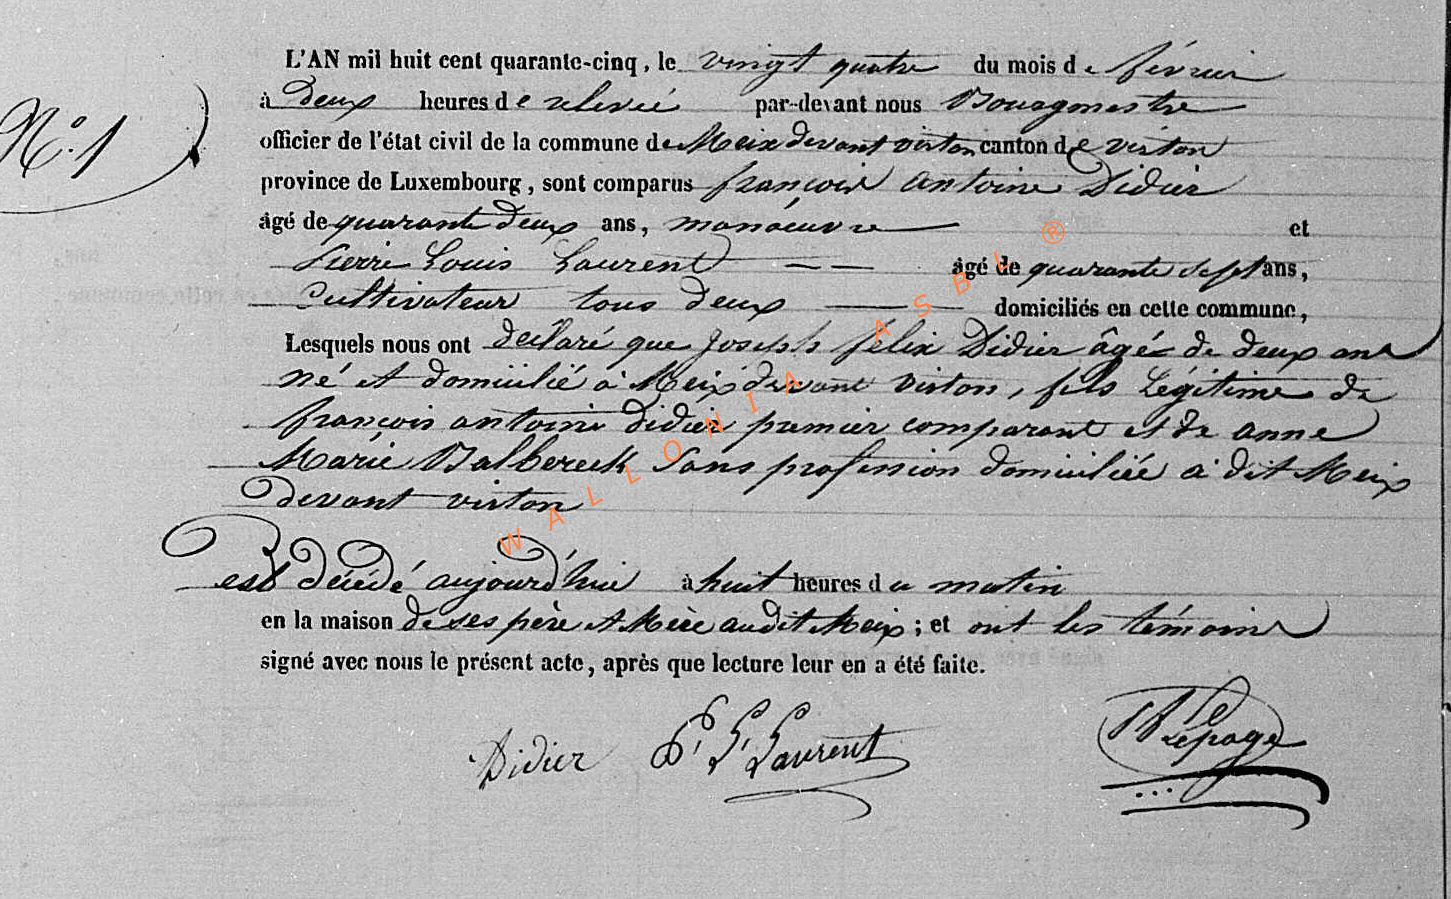 N.° 1
L'AN mil huit cent quarante-cinq, le vingt quatre du mois de février
à deux heures de relevée par-devant nous Bourgmestre
officier de l'état civil de la commune de Meix devant virton canton de virton
province de Luxembourg, sont comparus françois antoine Didier
âgé de quarante deux ans, manoeuvre et
Pierre Louis Laurent âgé de quarante sept ans,
Cultivateur tous deux domiciliés en cette commune,
Lesquels nous ont déclaré que Joseph félix Didier âgé de deux ans
né et domicilié à Meix devant virton, fils Légitime de
françois antoine didier premier comparant et de anne
Marie Balbereck sans profession domiciliée à dit Meix
devant virton
est décédé aujourd'hui à huit heures du matin
en la maison de ses père et Mère audit Meix ; et ont les témoins
signé avec nous le présent acte, après que lecture leur en a été faite.
Didier P. L. Laurent Lepage
WALLONIA ASBL ®